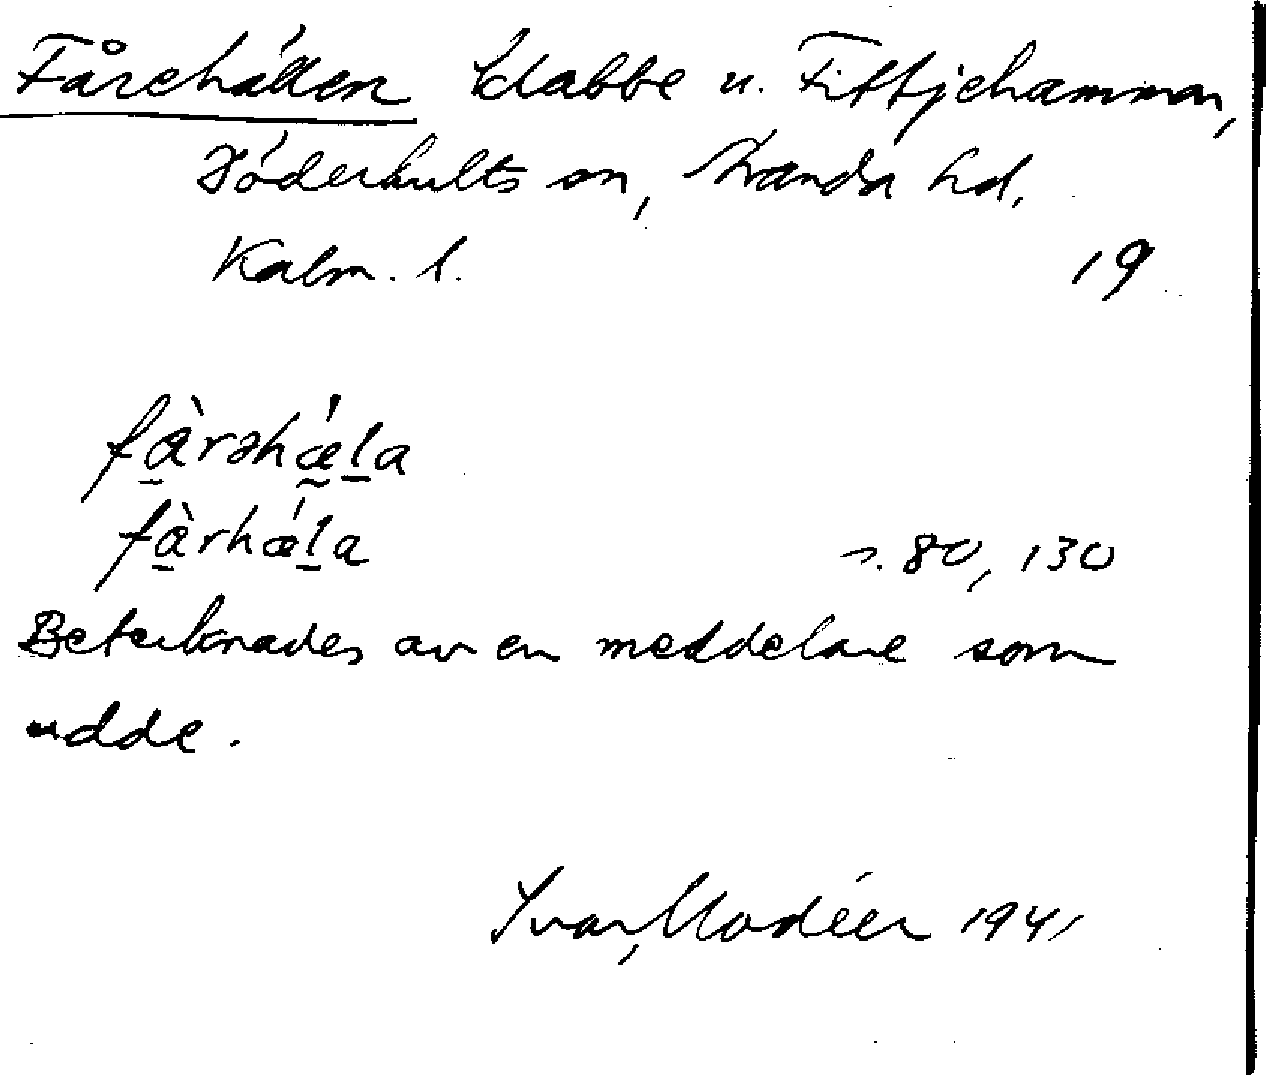 Fårehällen klabbe u. Fittjehammar,
Döderhults sn, Stranda hd.
Kalm. l. 19
fàrəhǽla
fàrhǽla s. 80, 130
Betecknades av en meddelare som
udde.
Ivar Modéer 1941